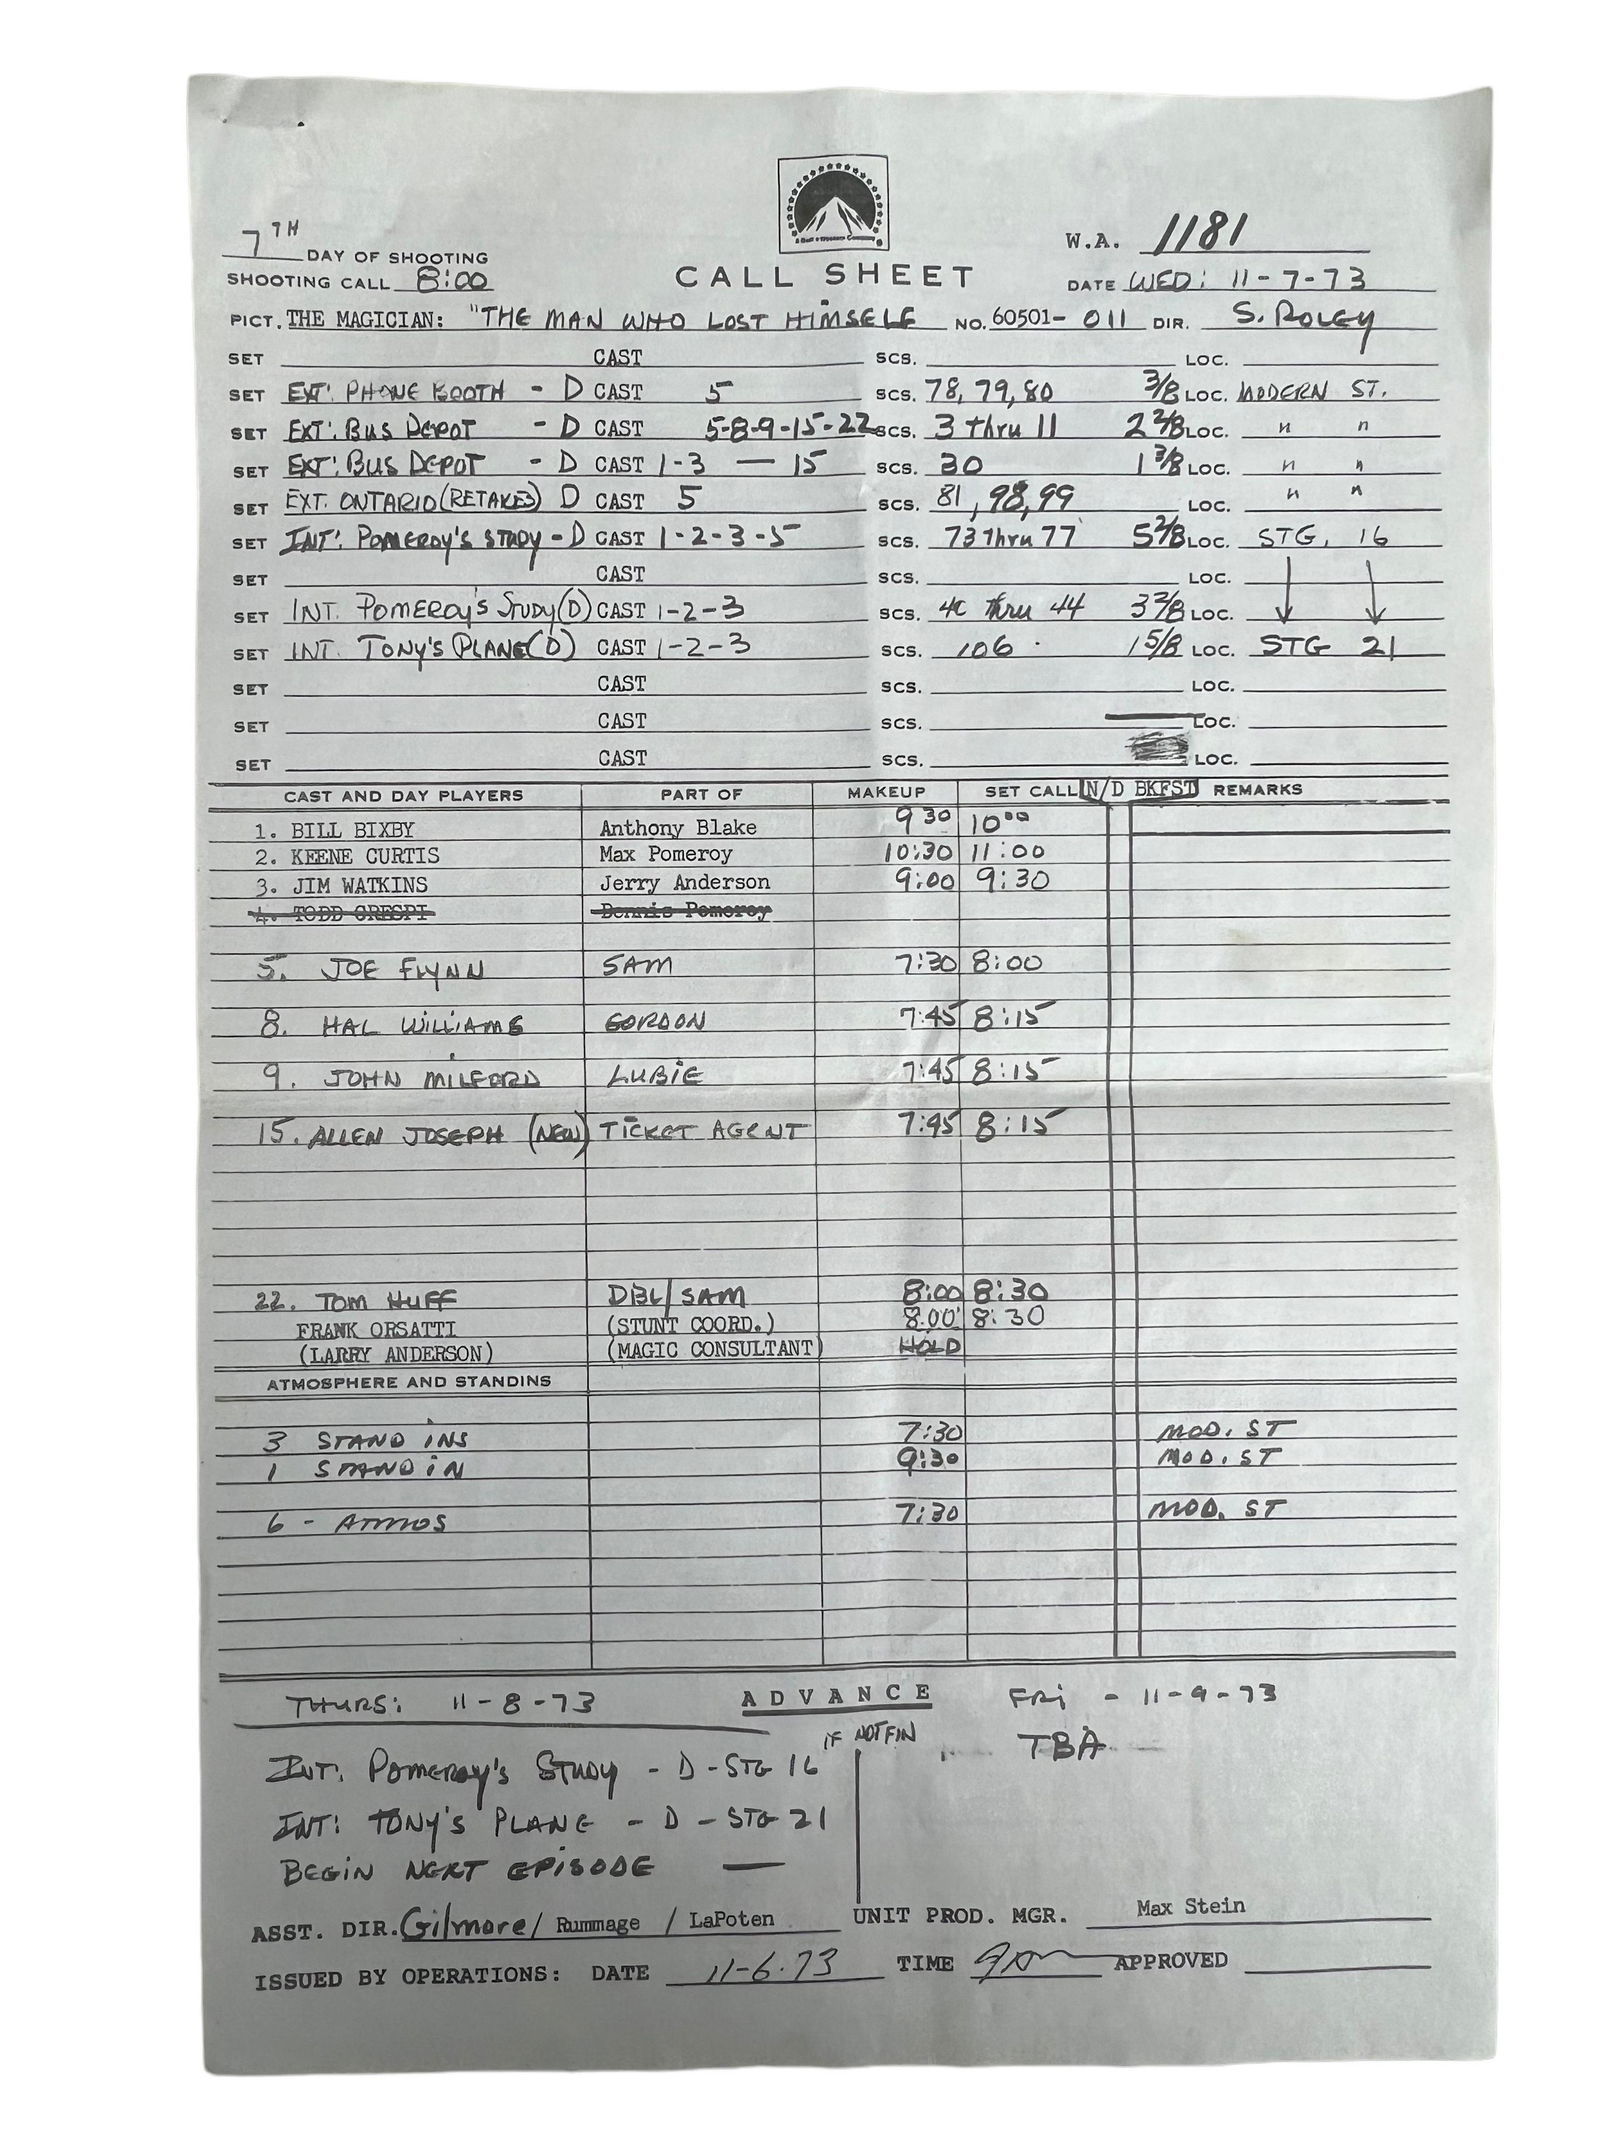 7TH DAY OF SHOOTING
W.A. 1181
SHOOTING CALL 8:00
CALL SHEET
DATE WED: 11-7-73
PICT. THE MAGICIAN: "THE MAN WHO LOST HIMSELF NO. 60501- 011 DIR. S. ROLEY
SET CAST SCS. LOC.
SET EXT: PHONE BOOTH - D CAST 5 SCS. 78, 79, 80 3/8 LOC. MODERN ST.
SET EXT: BUS DEPOT - D CAST 5-8-9-15-22 SCS. 3 thru 11 2 2/8 LOC. " "
SET EXT: BUS DEPOT - D CAST 1-3 — 15 SCS. 30 1 3/8 LOC. " "
SET EXT. ONTARIO (RETAKES) D CAST 5 SCS. 81, 98, 99 LOC. " "
SET INT: POMEROY'S STUDY - D CAST 1-2-3-5 SCS. 73 thru 77 5 2/8 LOC. STG. 16
SET CAST SCS. LOC.
SET INT. POMEROY'S STUDY (D) CAST 1-2-3 SCS. thru 44 3 2/8 LOC.
SET INT. TONY'S PLANE (D) CAST 1-2-3 SCS. 106 1 5/8 LOC. STG 21
SET CAST SCS. LOC.
SET CAST SCS. LOC.
SET CAST SCS. LOC.
CAST AND DAY PLAYERS PART OF MAKEUP SET CALL N/D BKFST REMARKS
1. BILL BIXBY Anthony Blake 9 30 10 00
2. KEENE CURTIS Max Pomeroy 10:30 11:00
3. JIM WATKINS Jerry Anderson 9:00 9:30
4. TODD CRESPI Dennis Pomeroy
5. JOE FLYNN SAM 7:30 8:00
8. HAL WILLIAMS GORDON 7:45 8:15
9. JOHN MILFORD LUBIE 7:45 8:15
15. ALLEN JOSEPH (NEW) TICKET AGENT 7:45 8:15
22. TOM HUFF DBL/SAM 8:00 8:30
FRANK ORSATTI (STUNT COORD.) 8:00 8:30
(LARRY ANDERSON) (MAGIC CONSULTANT) HOLD
ATMOSPHERE AND STANDINS
3 STAND INS 7:30 MOD. ST
1 STAND IN 9:30 MOD. ST
6 - ATMOS 7:30 MOD. ST
THURS: 11-8-73 ADVANCE FRI - 11-9-73
IF NOT FIN
TBA
INT: POMEROY'S STUDY - D - STG 16
INT: TONY'S PLANE - D - STG 21
BEGIN NEXT EPISODE —
ASST. DIR. Gilmore / Rummage / LaPoten UNIT PROD. MGR. Max Stein
ISSUED BY OPERATIONS: DATE 11-6-73 TIME APPROVED